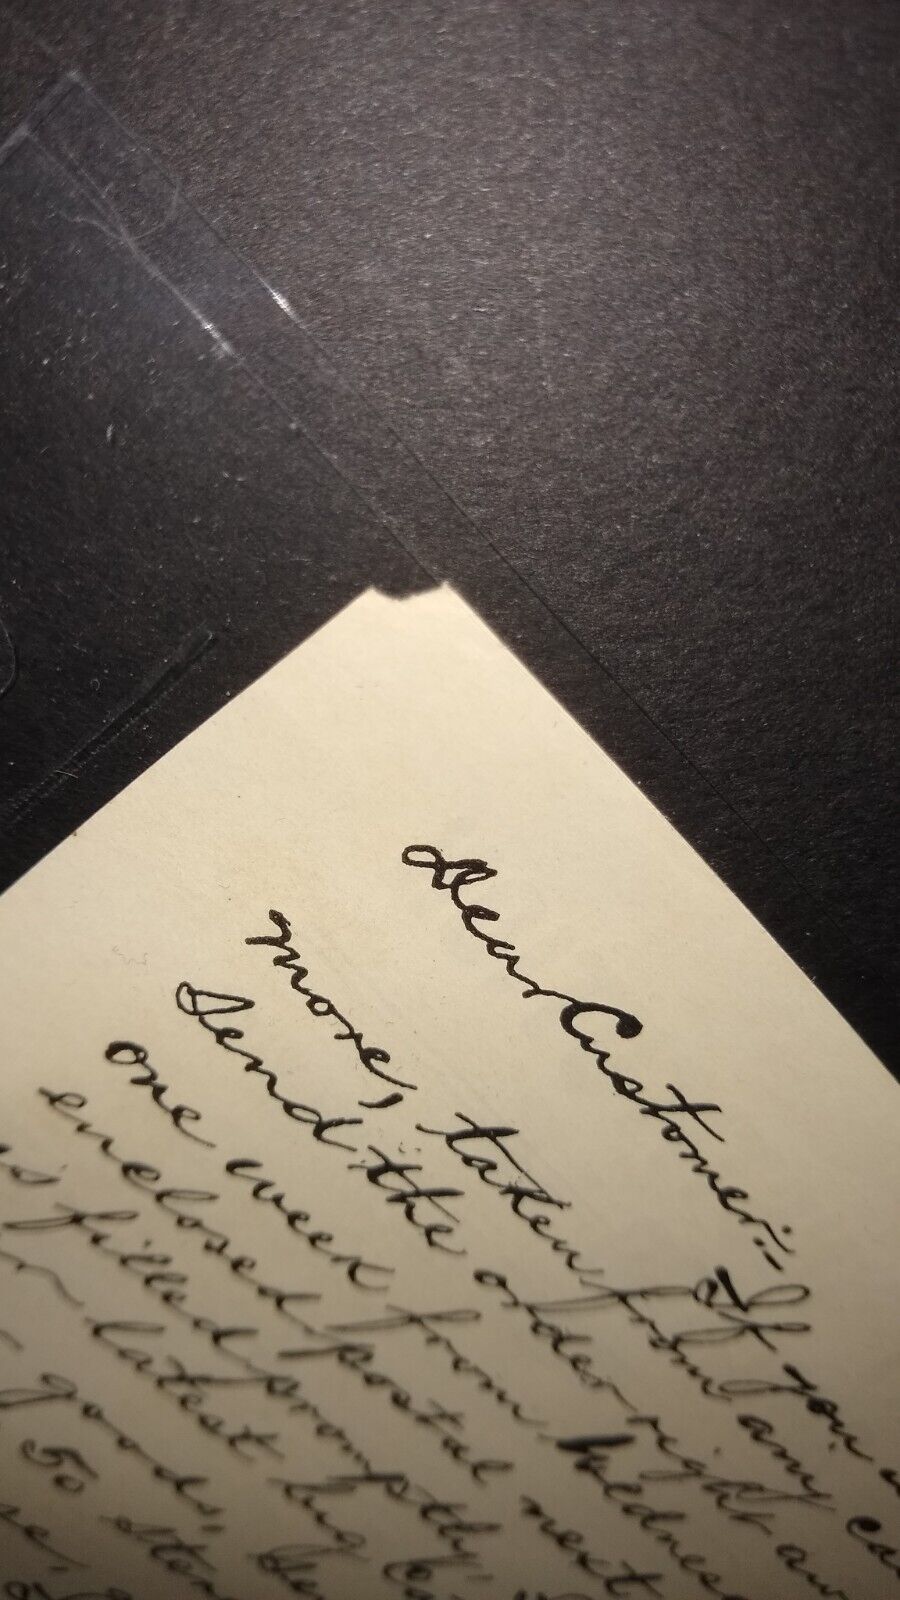 Dear Customer:- If you
more, taken from any
Send the order right
one week from Wednes
enclosed postal next
filled promptly
latest big
goods,
50